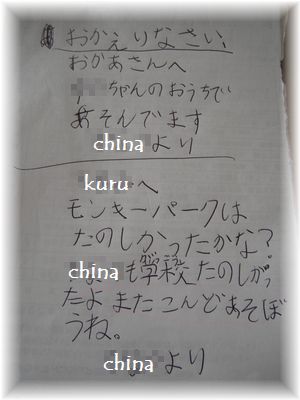 おかえりなさい、
おかあさんへ
ちゃんのおうちで
あそんでます
chinaより
kuruへ
モンキーパークは
たのしかったかな?
chinaも学校たのしかっ
たよ またこんどあそぼ
うね。
chinaより